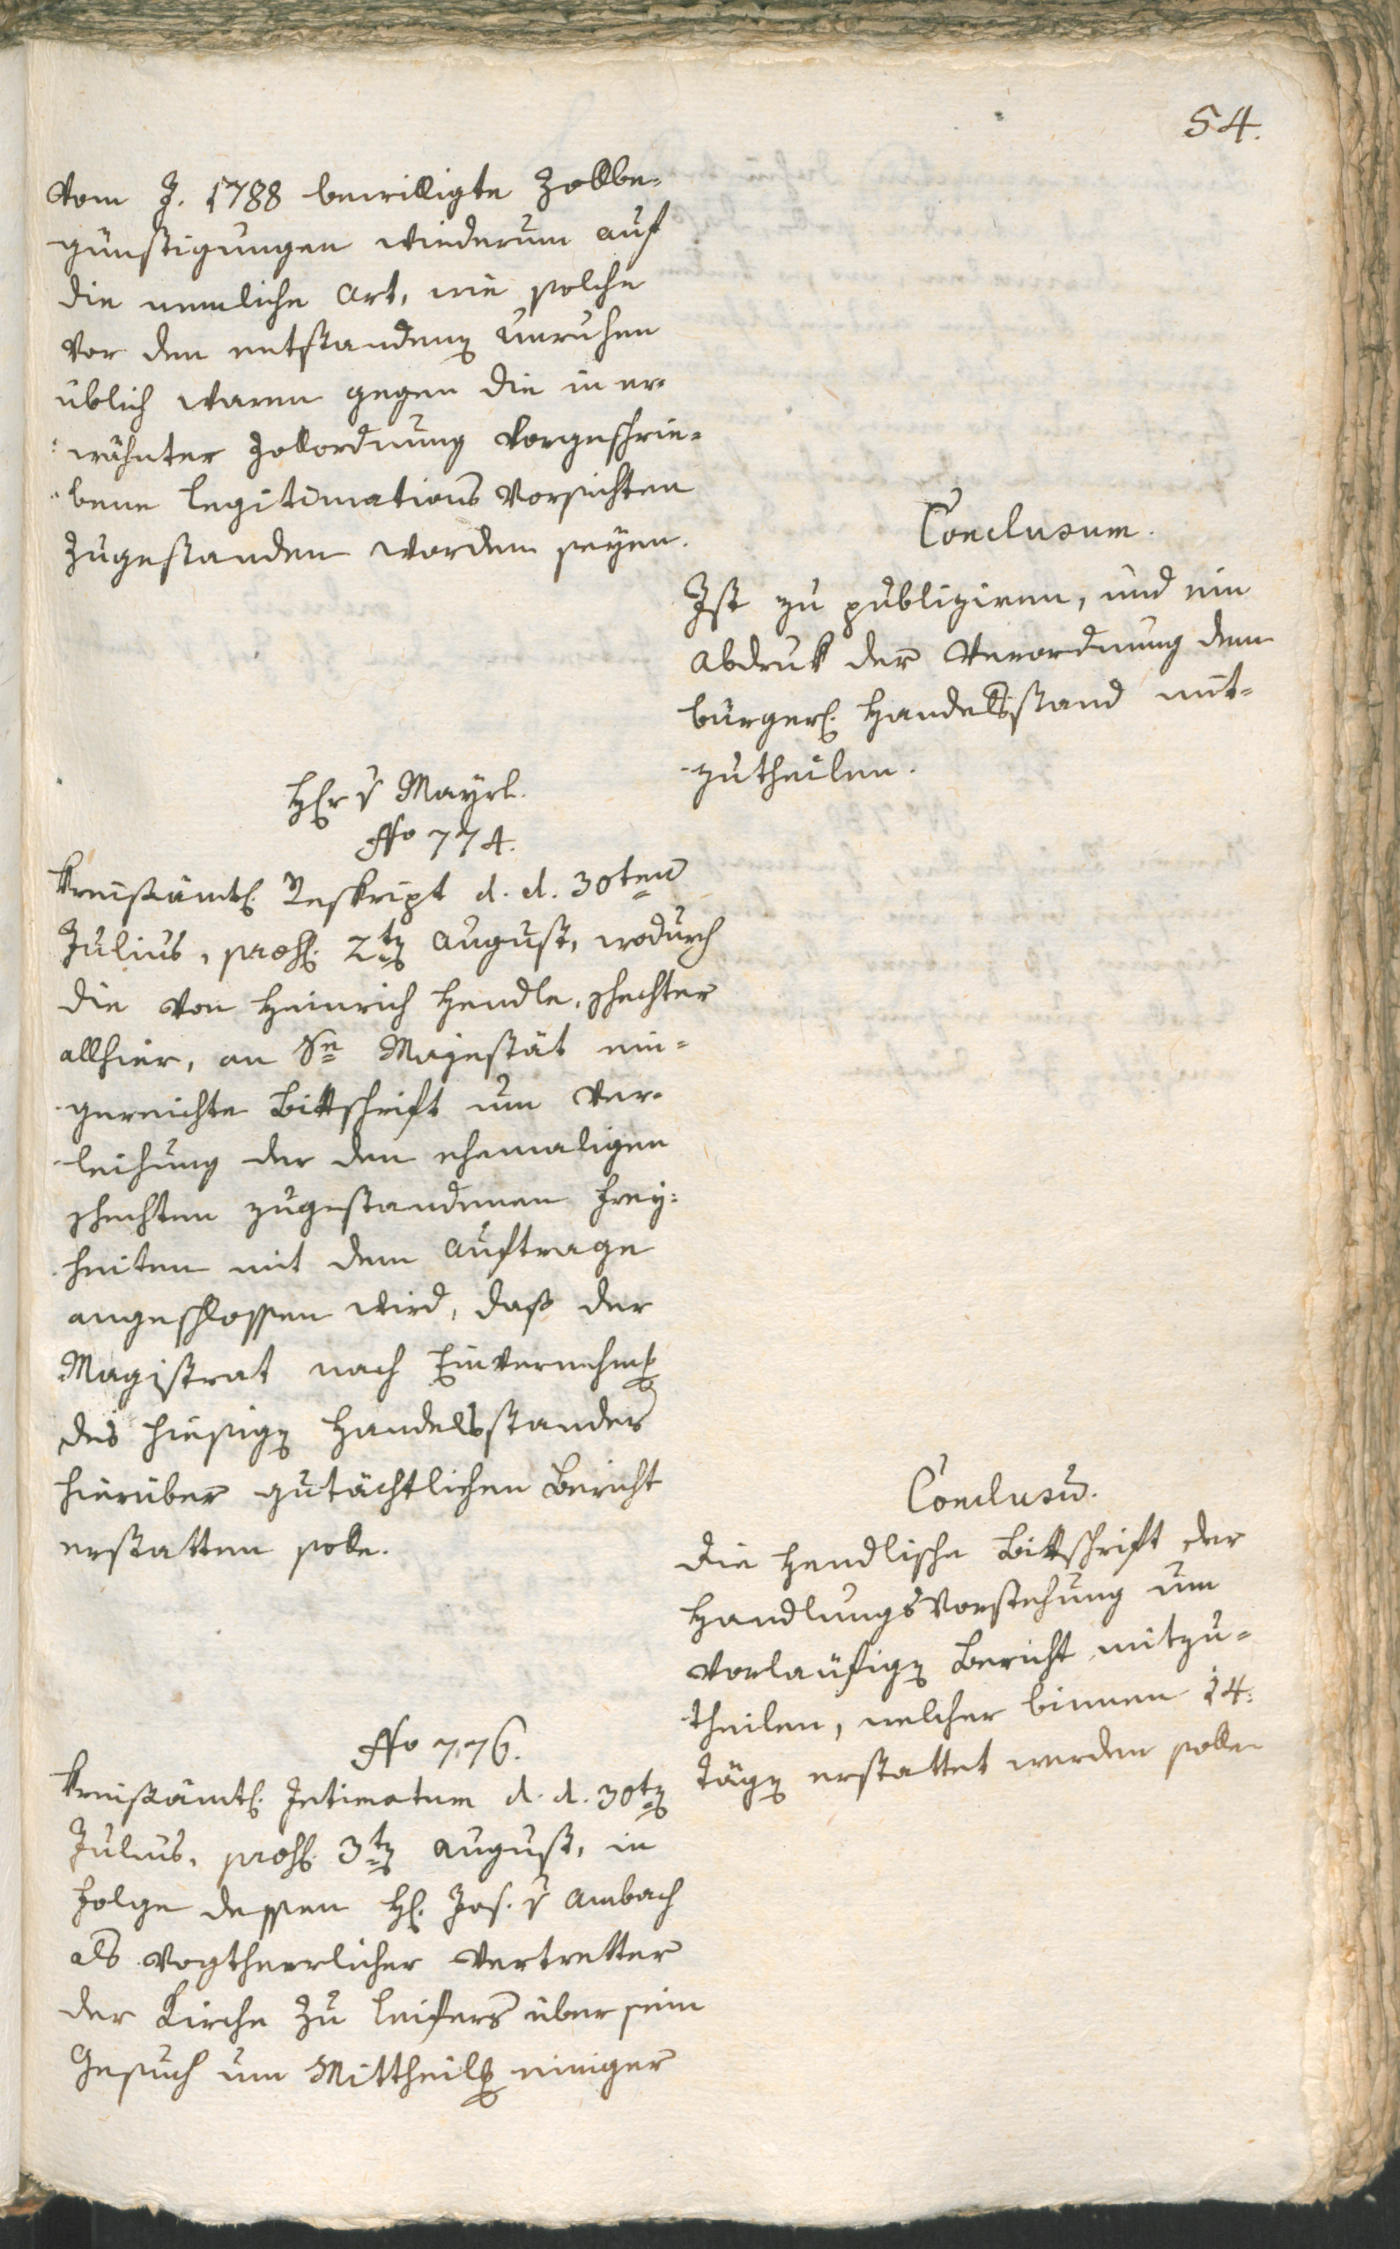 54.
vom J. 1788 bewilligte Zollbe-
günstigungen wiederum auf
die nemliche Art, wie solche
vor den entstanden Unruhen
üblich waren gegen die in er-
wähnter Zollordnung vorgeschrie-
bene Legitimations Vorsichten
zugestanden worden seyen.
Conclusum.
Ist zu publiziren, und ein
Abdruk der Verordnung dem
bürgerl. Handelsstand mit-
zutheilen.
Hr v Mayrl.
No 774.
Kreisämtl. Reskript d. d. 30ten
Julius, praes. 2ten August, wodurch
die von Heinrich Hendle,
allhier, an Se Majestät ein-
gereichte Bittschrift um Ver-
leihung der den ehemaligen
zugestandenen Frey-
heiten mit dem Auftrage
angeschlossen wird, daß der
Magistrat nach Einvernehmung
des hiesigen Handelsstandes
hierüber gutächtlichen Bericht
erstatten solle.
Conclusum.
Die Hendlische Bittschrift der
Handlungsvorstehung um
vorläufigen Bericht mitzu-
theilen, welcher binnen 14.
Tägen erstattet werden solle
No 776.
Kreisämtl. Intimatum d. d. 30ten
Julius, praes. 3ten August, in
Folge dessen H. Jos. v Ambach
als vogtherrlicher Vertretter
der Kirche zu Leifers über sein
Gesuch um Mittheilung einiger